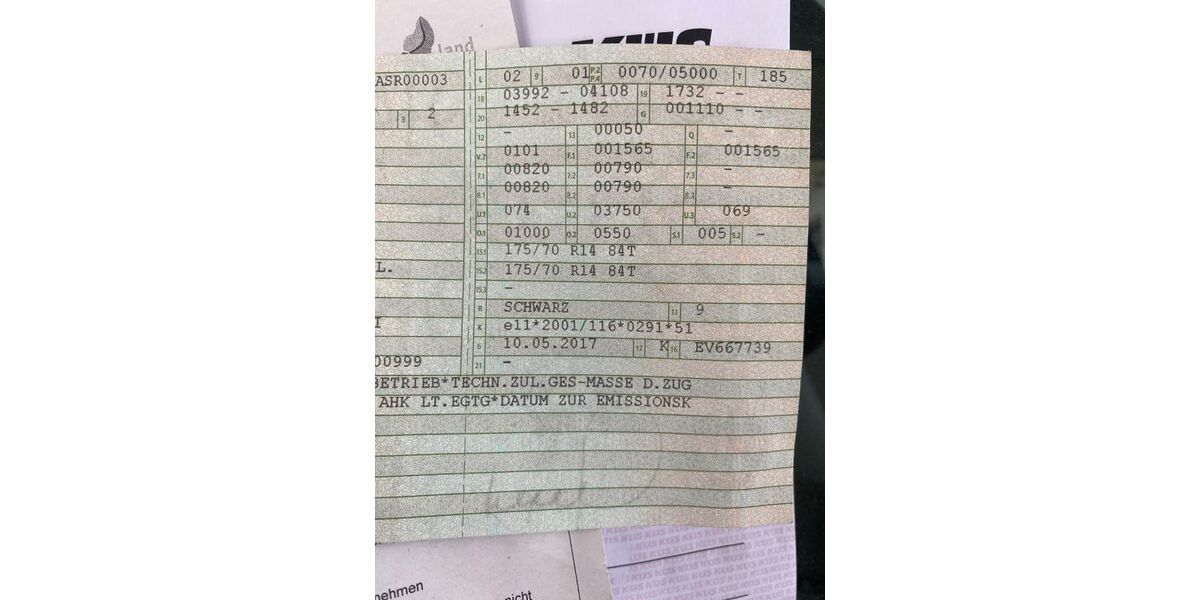 land
KÜS
ASR00003 L 02 9 01 P.2 P.4 0070/05000 T 185
18 03992 - 04108 19 1732 - -
3 2 20 1452 - 1482 G 001110 - -
12 - 13 00050 Q -
V.7 0101 F.1 001565 F.2 001565
7.1 00820 7.2 00790 7.3 -
8.1 00820 8.2 00790 8.3 -
U.1 074 U.2 03750 U.3 069
O.1 01000 O.2 0550 S.1 005 S.2 -
15.1 175/70 R14 84T
L. 15.2 175/70 R14 84T
15.3 -
R SCHWARZ 11 9
K e11*2001/116*0291*51
6 10.05.2017 17 K 16 EV667739
00999 21 -
BETRIEB*TECHN.ZUL.GES-MASSE D.ZUG
AHK LT.EGTG*DATUM ZUR EMISSIONSK
KÜS KÜS KÜS KÜS
nehmen
nicht